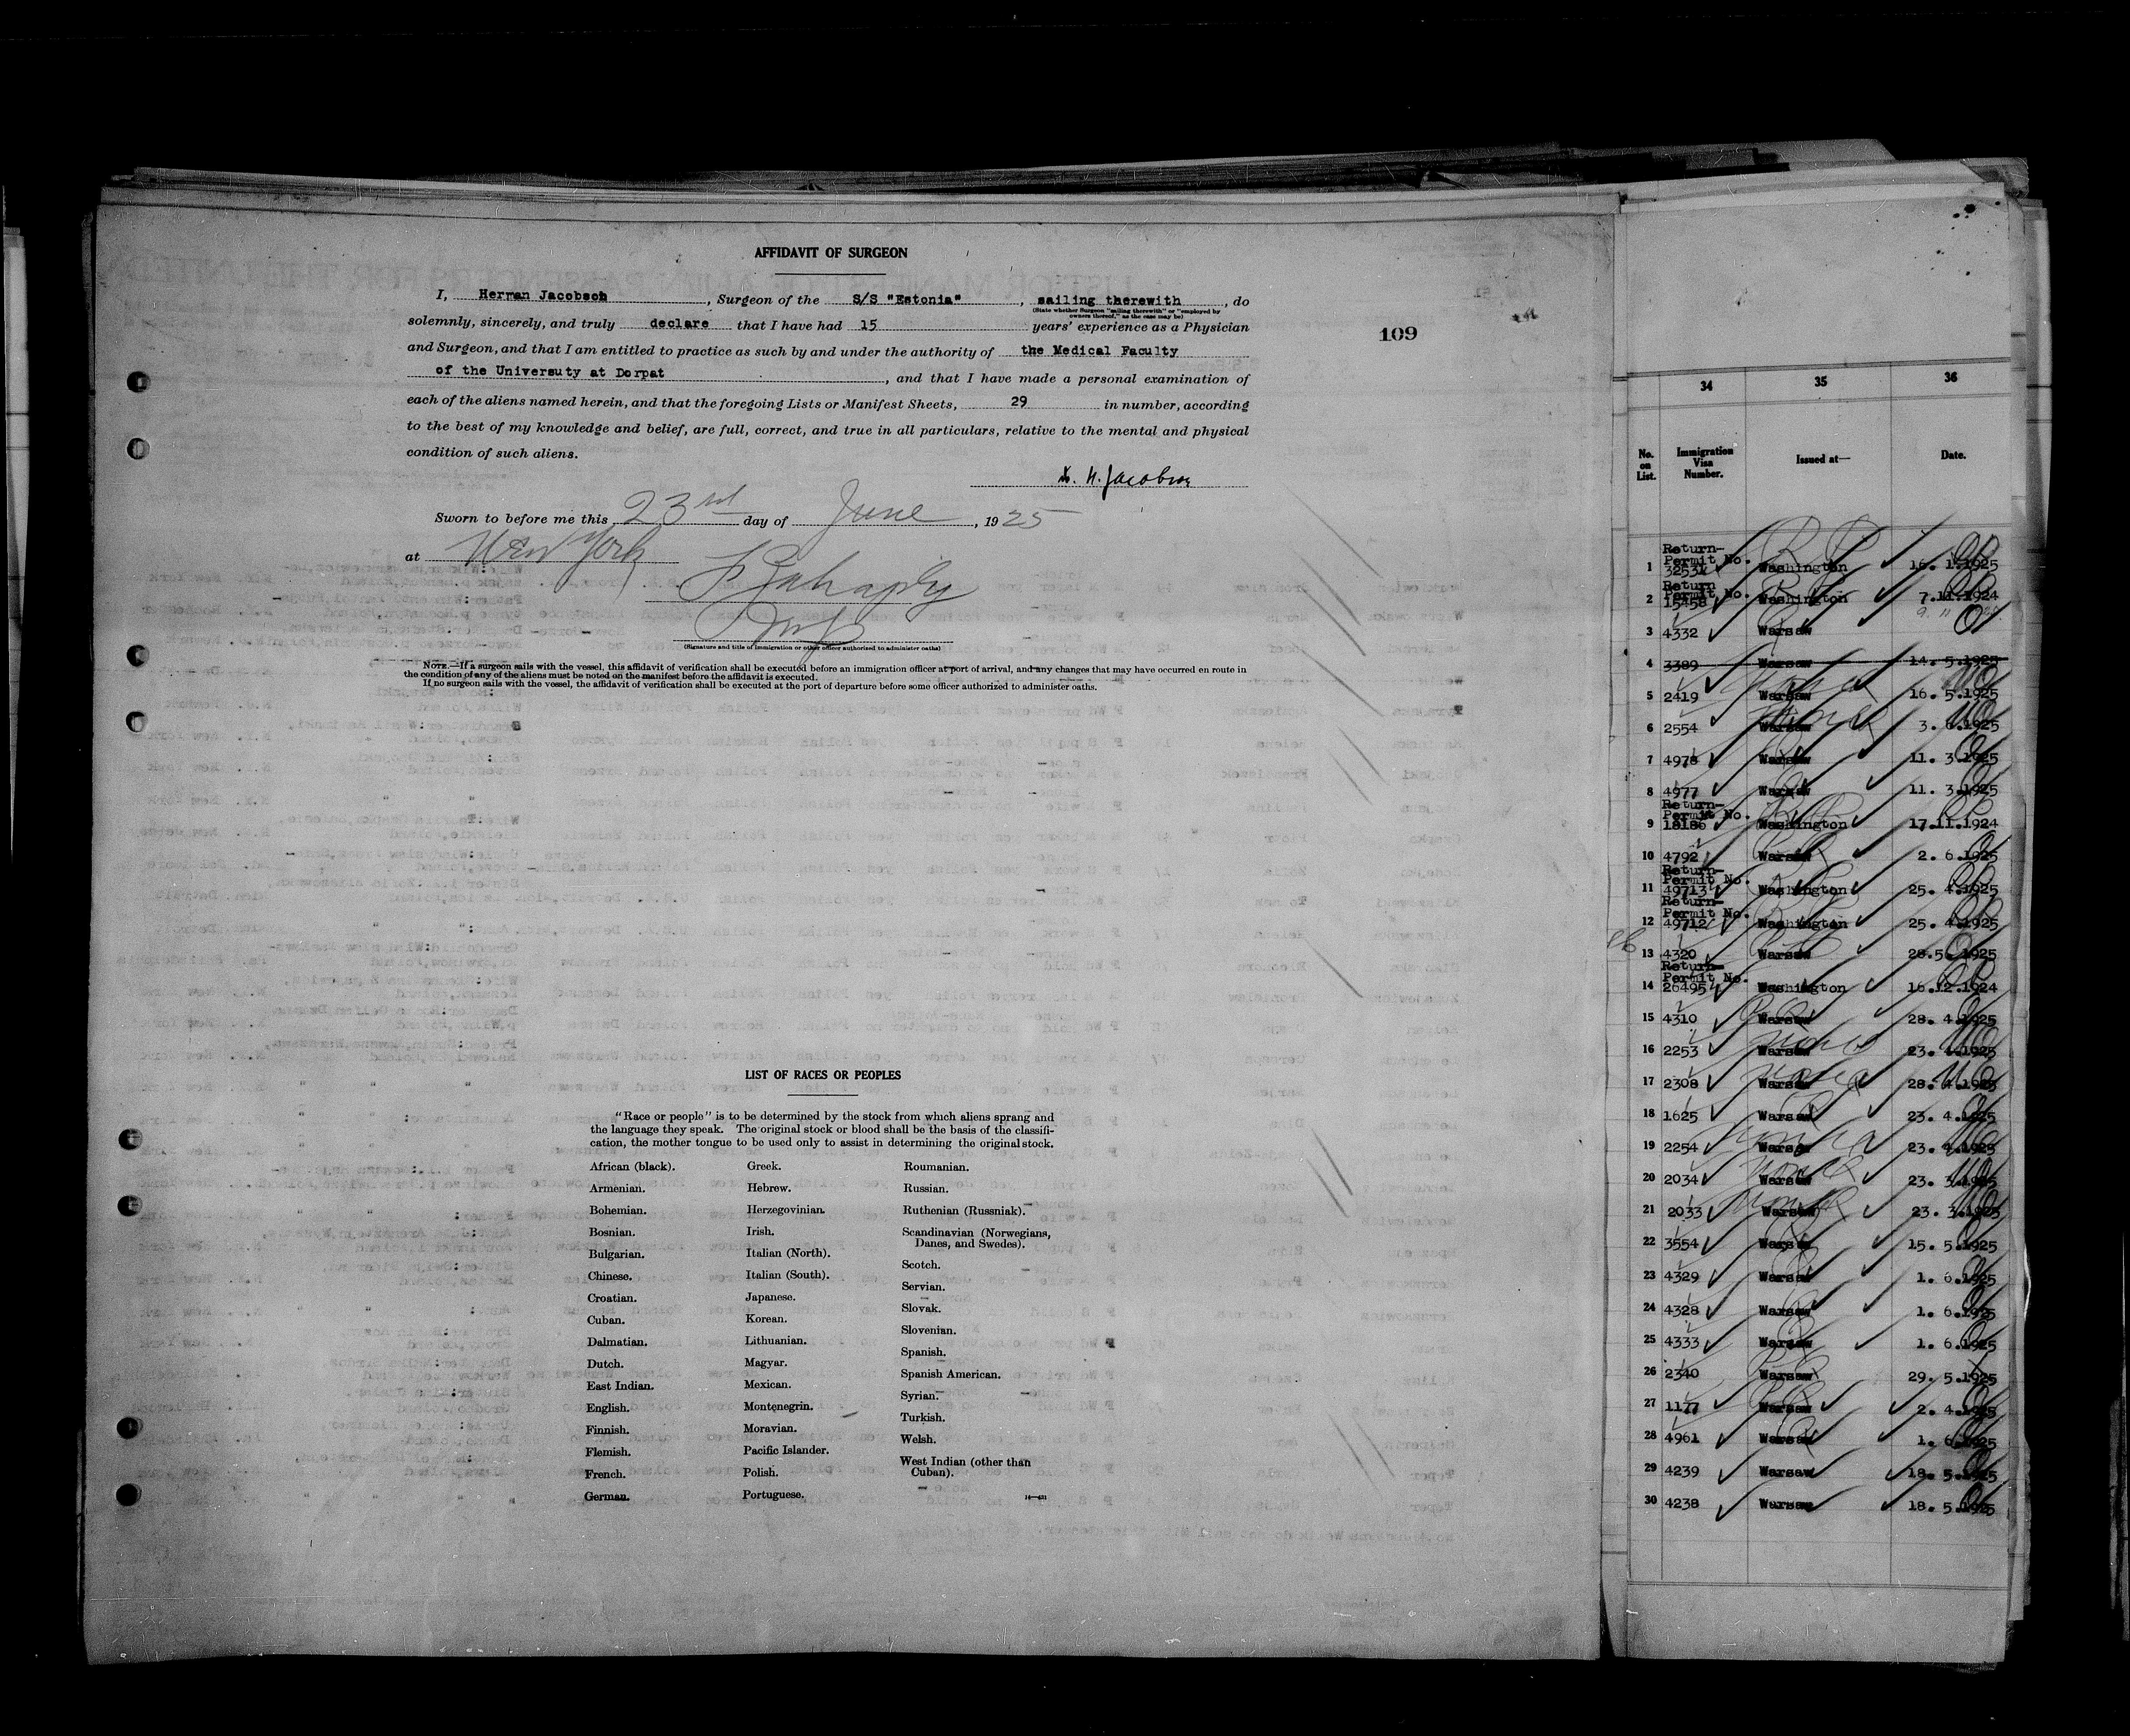 AFFIDAVIT OF SURGEON
I, Herman Jacobson, Surgeon of the S/S "Estonia", sailing therewith, do
(State whether Surgeon "sailing therewith" or "employed by
owners thereof," as the case may be)
solemnly, sincerely, and truly declare that I have had 15 years' experience as a Physician
109
and Surgeon, and that I am entitled to practice as such by and under the authority of the Medical Faculty
of the Universuty at Dorpat, and that I have made a personal examination of
each of the aliens named herein, and that the foregoing Lists or Manifest Sheets, 29 in number, according
to the best of my knowledge and belief, are full, correct, and true in all particulars, relative to the mental and physical
condition of such aliens.
H. Jacobson
Sworn to before me this 23rd day of June, 1925
at New York
(Signature and title of immigration or other officer authorized to administer oaths)
NOTE.—If a surgeon sails with the vessel, this affidavit of verification shall be executed before an immigration officer at port of arrival, and any changes that may have occurred en route in
the condition of any of the aliens must be noted on the manifest before the affidavit is executed.
If no surgeon sails with the vessel, the affidavit of verification shall be executed at the port of departure before some officer authorized to administer oaths.
LIST OF RACES OR PEOPLES
"Race or people" is to be determined by the stock from which aliens sprang and
the language they speak. The original stock or blood shall be the basis of the classifi-
cation, the mother tongue to be used only to assist in determining the original stock.
African (black).
Armenian.
Bohemian.
Bosnian.
Bulgarian.
Chinese.
Croatian.
Cuban.
Dalmatian.
Dutch.
East Indian.
English.
Finnish.
Flemish.
French.
German.
Greek.
Hebrew.
Herzegovinian.
Irish.
Italian (North).
Italian (South).
Japanese.
Korean.
Lithuanian.
Magyar.
Mexican.
Montenegrin.
Moravian.
Pacific Islander.
Polish.
Portuguese.
Roumanian.
Russian.
Ruthenian (Russniak).
Scandinavian (Norwegians,
Danes, and Swedes).
Scotch.
Servian.
Slovak.
Slovenian.
Spanish.
Spanish American.
Syrian.
Turkish.
Welsh.
West Indian (other than
Cuban).
34 35 36
No. on List. Immigration Visa Number. Issued at— Date.
1 Return-Permit No. 32531 Washington 16. 1.1925
2 Return Permit No. 15458 Washington 7.11.1924
3 4332 Warsaw
4 3389 Warsaw 14. 5.1925
5 2419 Warsaw 16. 5.1925
6 2554 Warsaw 3. 6.1925
7 4978 Warsaw 11. 3.1925
8 4977 Warsaw 11. 3.1925
9 Return-Permit No. 18186 Washington 17.11.1924
10 4792 Warsaw 2. 6.1925
11 Return-Permit No. 49713 Washington 25. 4.1925
12 Return-Permit No. 49712 Washington 25. 4.1925
13 4320 Warsaw 28.5.1925
14 Return-Permit No. 26495 Washington 16.12.1924
15 4310 Warsaw 28. 4.1925
16 2253 Warsaw 23. 4.1925
17 2308 Warsaw 28. 4.1925
18 1625 Warsaw 23. 4.1925
19 2254 Warsaw 23. 4.1925
20 2034 Warsaw 23. 3.1925
21 2033 Warsaw 23. 3.1925
22 3554 Warsaw 15. 5.1925
23 4329 Warsaw 1. 6.1925
24 4328 Warsaw 1. 6.1925
25 4333 Warsaw 1. 6.1925
26 2340 Warsaw 29. 5.1925
27 1177 Warsaw 2. 4.1925
28 4961 Warsaw 1. 6.1925
29 4239 Warsaw 18. 5.1925
30 4238 Warsaw 18. 5.1925